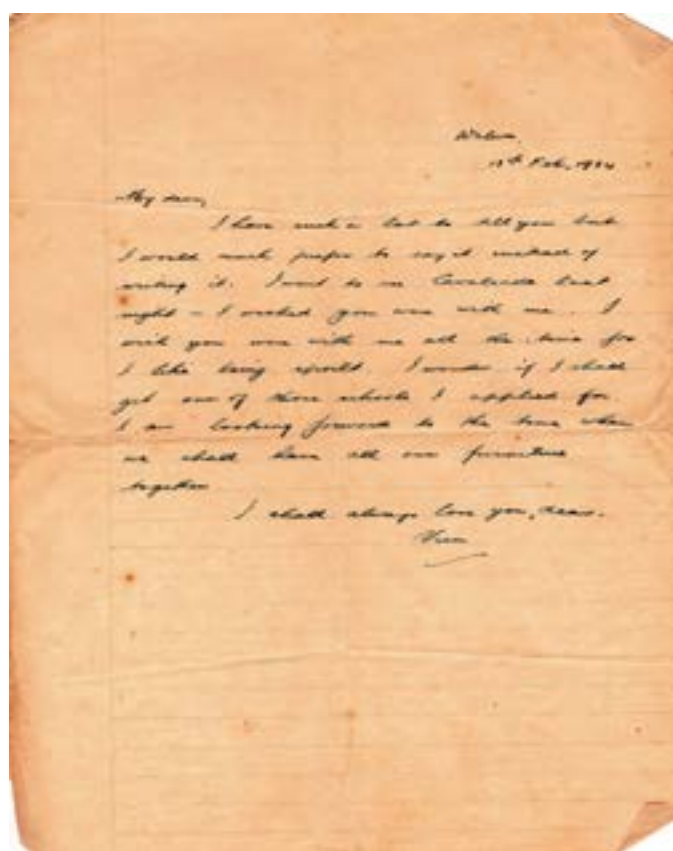 Feb, 1934
My dear,
I have such a lot to tell you but
I would much prefer to say it instead of
writing it. I went to see Cavalcade last
night - I wished you were with me. I
wish you were with me all the time for
I like being spoilt. I wonder if I shall
get one of those schools I applied for
I am looking forward to the time when
we shall have all our furniture
together
I shall always love you, dear.